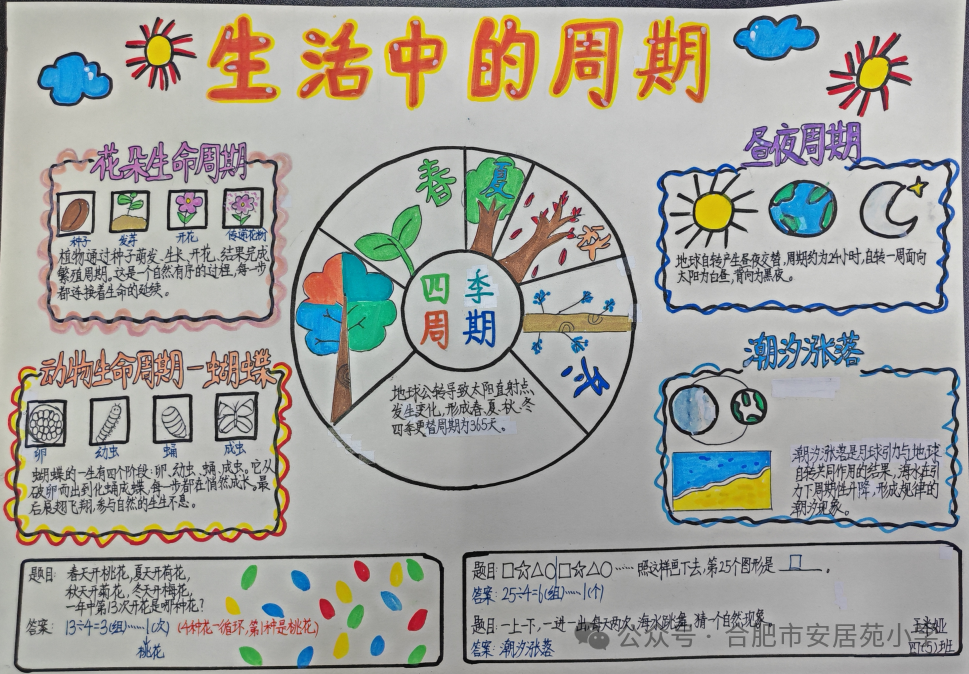 生活中的周期
花朵生命周期
种子 发芽 开花 传递花粉
植物通过种子萌发、生长、开花、结果完成
繁殖周期。这是个自然有序的过程,每一步
都连接着生命的延续。
动物生命周期—蝴蝶
卵 幼虫 蛹 成虫
蝴蝶的一生有四个阶段:卵、幼虫、蛹、成虫。它从
破卵而出到化蛹成蝶,每一步都在悄然成长,最
后展翅飞翔,参与自然的生生不息。
春
夏
秋
冬
四季
周期
地球公转导致太阳直射点
发生变化,形成春、夏、秋、冬
四季更替周期为365天。
昼夜周期
地球自转产生昼夜交替,周期约为24小时,自转一周面向
太阳为白昼,背向为黑夜。
潮汐涨落
潮汐涨落是月球引力与地球
自转共同作用的结果,海水在引
力下周期性升降,形成规律的
潮汐现象。
题目: 春天开桃花,夏天开荷花,
秋天开菊花,冬天开梅花,
一年中第13次开花是哪种花?
答案: 13÷4=3(组)……1(次) (4种花一循环,第1种是桃花)
桃花
题目:□☆△○□☆△○……照这样画下去,第25个图形是 □ 。
答案: 25÷4=6(组)……1(个)
题目:一上一下,一进一出,每天两次,海水跳舞,猜一个自然现象。
答案: 潮汐涨落
公众号·合肥市安居苑小学
四(5)班